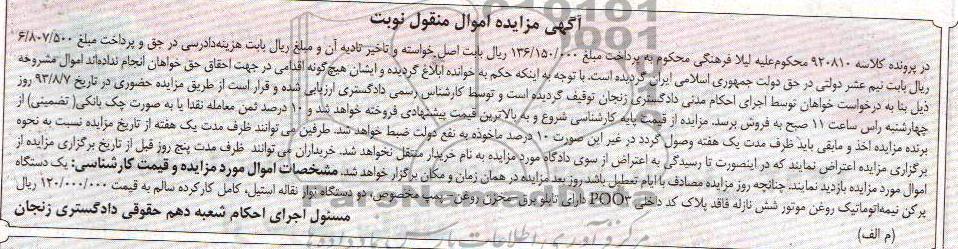 آگهی مزایده اموال منقول نوبت
در پرونده کلاسه ۹۲۰۸۱۰ محکوم‌علیه لیلا فرهنگی محکوم به پرداخت مبلغ ۱۳۶/۱۵۰/۰۰۰ ریال بابت اصل خواسته و تاخیر تادیه آن و مبلغ ریال بابت هزینه‌دادرسی در حق و پرداخت مبلغ ۶/۸۰۷/۵۰۰
ریال بابت نیم عشر دولتی در حق دولت جمهوری اسلامی ایران گردیده است. با توجه به اینکه حکم به خوانده ابلاغ گردیده و ایشان هیچ‌گونه اقدامی در جهت احقاق حق خواهان انجام نداده‌اند اموال مشروحه
ذیل بنا به درخواست خواهان توسط اجرای احکام مدنی دادگستری زنجان توقیف گردیده است و توسط کارشناس رسمی دادگستری ارزیابی شده و قرار است از طریق مزایده حضوری در تاریخ ۹۳/۸/۷ روز
چهارشنبه راس ساعت ۱۱ صبح به فروش برسد. مزایده از قیمت پایه کارشناسی شروع و به بالاترین قیمت پیشنهادی فروخته خواهد شد و ۱۰ درصد ثمن معامله نقدا یا به صورت چک بانکی( تضمینی) از
برنده مزایده اخذ و مابقی باید ظرف مدت یک هفته وصول گردد در غیر این صورت ۱۰ درصد ماخوذه به نفع دولت ضبط خواهد شد. طرفین می توانند ظرف مدت یک هفته از تاریخ مزایده نسبت به نحوه
برگزاری مزایده اعتراض نمایند که در اینصورت تا رسیدگی به اعتراض از سوی دادگاه مورد مزایده به نام خریدار منتقل نخواهد شد. خریداران می توانند ظرف مدت پنج روز قبل از تاریخ برگزاری مزایده از
اموال مورد مزایده بازدید نمایند. چنانچه روز مزایده مصادف با ایام تعطیل باشد روز بعد مزایده در همان زمان و مکان برگزار خواهد شد. مشخصات اموال مورد مزایده و قیمت کارشناسی: یک دستگاه
پرکن نیمه‌اتوماتیک روغن موتور شش نازله فاقد پلاک کد داخلی POO۳ دارای تابلو برق- مخزن روغن- پمپ مخصوص، دو دستگاه نوار نقاله استیل، کامل کارکرده سالم به قیمت ۱۲۰/۰۰۰/۰۰۰ ریال
(م الف) مسئول اجرای احکام شعبه دهم حقوقی دادگستری زنجان